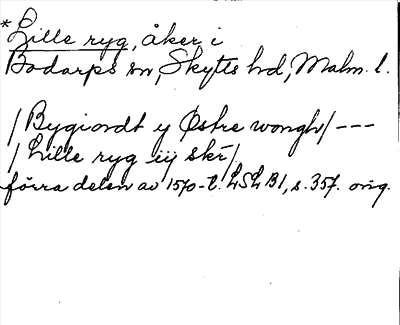 *Lille ryg, åker i
Bodarps sn, Skytts hd, Malm. l.
/Bygiordt y Østre wongh/---
/Lille ryg iij skr̄/
förra delen av 1570-t. LSLB1, s. 357. orig.